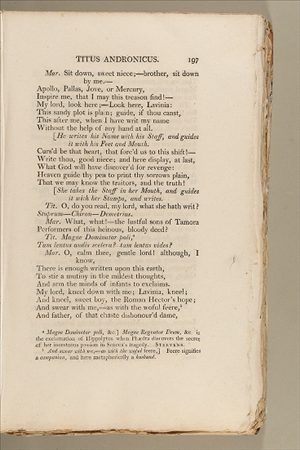 TITUS ANDRONICUS. 197
Mar. Sit down, sweet niece;—brother, sit down
by me.—
Apollo, Pallas, Jove, or Mercury,
Inspire me, that I may this treason find!—
My lord, look here;—Look here, Lavinia:
This sandy plot is plain; guide, if thou canst,
This after me, when I have writ my name
Without the help of any hand at all.
[He writes his Name with his Staff, and guides
it with his Feet and Mouth.
Curs'd be that heart, that forc'd us to this shift!—
Write thou, good niece; and here display, at last,
What God will have discover'd for revenge:
Heaven guide thy pen to print thy sorrows plain,
That we may know the traitors, and the truth!
[She takes the Staff in her Mouth, and guides
it with her Stumps, and writes.
Tit. O, do you read, my lord, what she hath writ?
Stuprum—Chiron—Demetrius.
Mar. What, what!—the lustful sons of Tamora
Performers of this heinous, bloody deed?
Tit. Magne Dominator poli,⁴
Tam lentus audis scelera? tam lentus vides?
Mar. O, calm thee, gentle lord! although, I
know,
There is enough written upon this earth,
To stir a mutiny in the mildest thoughts,
And arm the minds of infants to exclaims.
My lord, kneel down with me; Lavinia, kneel;
And kneel, sweet boy, the Roman Hector's hope;
And swear with me,—as with the woful feere,⁵
And father, of that chaste dishonour'd dame,
⁴ Magne Dominator poli, &c.] Magne Regnator Deum, &c. is
the exclamation of Hippolytus when Phædra discovers the secret
of her incestuous passion in Seneca's tragedy. STEEVENS.
⁵ And swear with me,—as with the woful feere,] Feere signifies
a companion, and here metaphorically a husband.